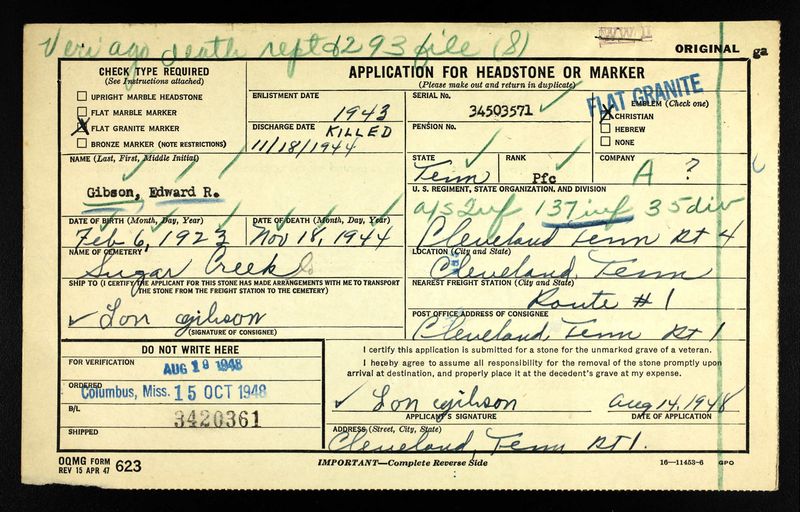 Veri ago death rept 293 file (8)
ORIGINAL
ga
CHECK TYPE REQUIRED
(See Instructions attached)
UPRIGHT MARBLE HEADSTONE
FLAT MARBLE MARKER
X FLAT GRANITE MARKER
BRONZE MARKER (NOTE RESTRICTIONS)
APPLICATION FOR HEADSTONE OR MARKER
(Please make out and return in duplicate)
ENLISTMENT DATE
1943
DISCHARGE DATE KILLED
11/18/1944
SERIAL No.
34503571
PENSION No.
FLAT GRANITE
EMBLEM (Check one)
X CHRISTIAN
HEBREW
NONE
NAME (Last, First, Middle Initial)
Gibson, Edward R.
STATE
Tenn
RANK
Pfc
COMPANY
A ?
U. S. REGIMENT, STATE ORGANIZATION, AND DIVISION
a/s Inf 137 inf 35 div
Cleveland Tenn Rt 4
DATE OF BIRTH (Month, Day, Year)
Feb 6, 1923
DATE OF DEATH (Month, Day, Year)
Nov 18, 1944
NAME OF CEMETERY
Sugar Creek
LOCATION (City and State)
Cleveland, Tenn
SHIP TO (I CERTIFY THE APPLICANT FOR THIS STONE HAS MADE ARRANGEMENTS WITH ME TO TRANSPORT
THE STONE FROM THE FREIGHT STATION TO THE CEMETERY)
Lon Gibson
(SIGNATURE OF CONSIGNEE)
NEAREST FREIGHT STATION (City and State)
Route # 1
POST OFFICE ADDRESS OF CONSIGNEE
Cleveland, Tenn Rt 1
DO NOT WRITE HERE
FOR VERIFICATION
AUG 19 1948
ORDERED
Columbus, Miss. 15 OCT 1948
B/L
3420361
SHIPPED
I certify this application is submitted for a stone for the unmarked grave of a veteran.
I hereby agree to assume all responsibility for the removal of the stone promptly upon
arrival at destination, and properly place it at the decedent's grave at my expense.
Lon Gibson Aug 14, 1948
APPLICANT'S SIGNATURE DATE OF APPLICATION
ADDRESS (Street, City, State)
Cleveland, Tenn Rt 1.
OQMG FORM
REV 15 APR 47 623
IMPORTANT—Complete Reverse Side
16—11453-6 GPO